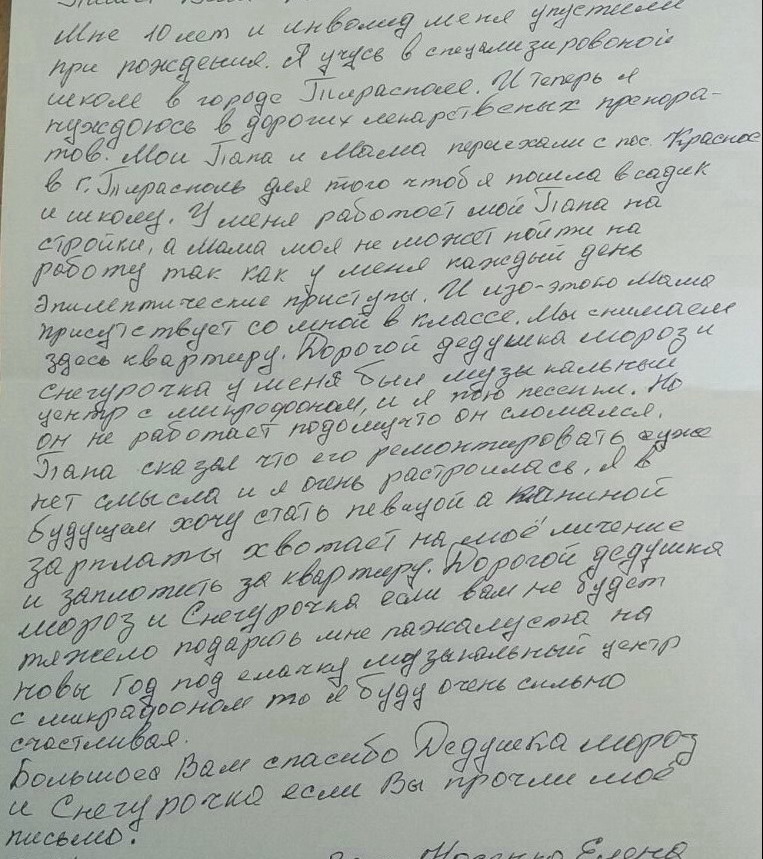 Мне 10 лет и инвалид меня упустили
при рождения. Я учусь в специализировоной
школе в городе Тирасполе. И теперь я
нуждоюсь в дорогих лекарственых препора-
тов. Мои Папа и Мама переехали с пос. Красное
в г. Тирасполь для того чтоб я пошла в садик
и школу. У меня работоет мой Папа на
стройки, а мама моя не может пойти на
работу так как у меня каждый день
эпилептические приступы. И изо-этого мама
присутствует со мной в классе. Мы снимаем
здесь квартиру. Дорогой дедушка мороз и
снегурочка у меня был музыкальный
центр с микрофоном, и я пою песени. Но
он не работает подомучто он сломался.
Папа сказал что его ремонтировать уже
нет смысла и я очень растроилась, я в
будущем хочу стать певицой а папиной
зарплаты хвотает на моё личение
и заплотить за квартиру. Дорогой дедушка
мороз и Снегурочка если вам не будет
тяжело подарить мне пажалуста на
новы Год под елачку музыкальный центр
с микрафоном то я буду очень сильно
счастливая.
Большоеа Вам спасибо Дедушка мороз
и Снегурочка если Вы прочли моё
письмо.
Елена